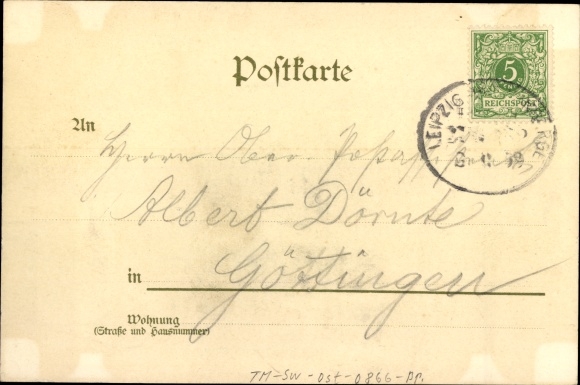 Postkarte
5
REICHSPOST
LEIPZIG
An
Herrn Ober
Albert Dörnte
in Göttingen
Wohnung
(Straße und Hausnummer)
TM-SW-Ost-0866-pp.